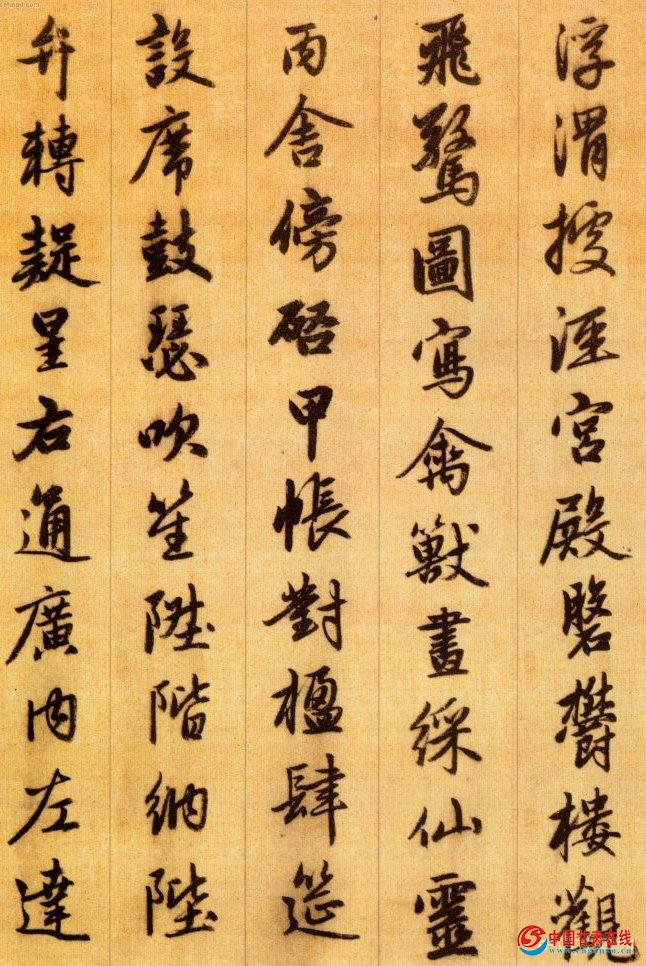 浮渭據涇宮殿磐欝樓觀
飛驚圖寫禽獸畫綵仙靈
丙舍傍啓甲帳對楹肆筵
設席鼓瑟吹笙陞階納陛
弁轉疑星右通廣內左達
中国甘肃在线